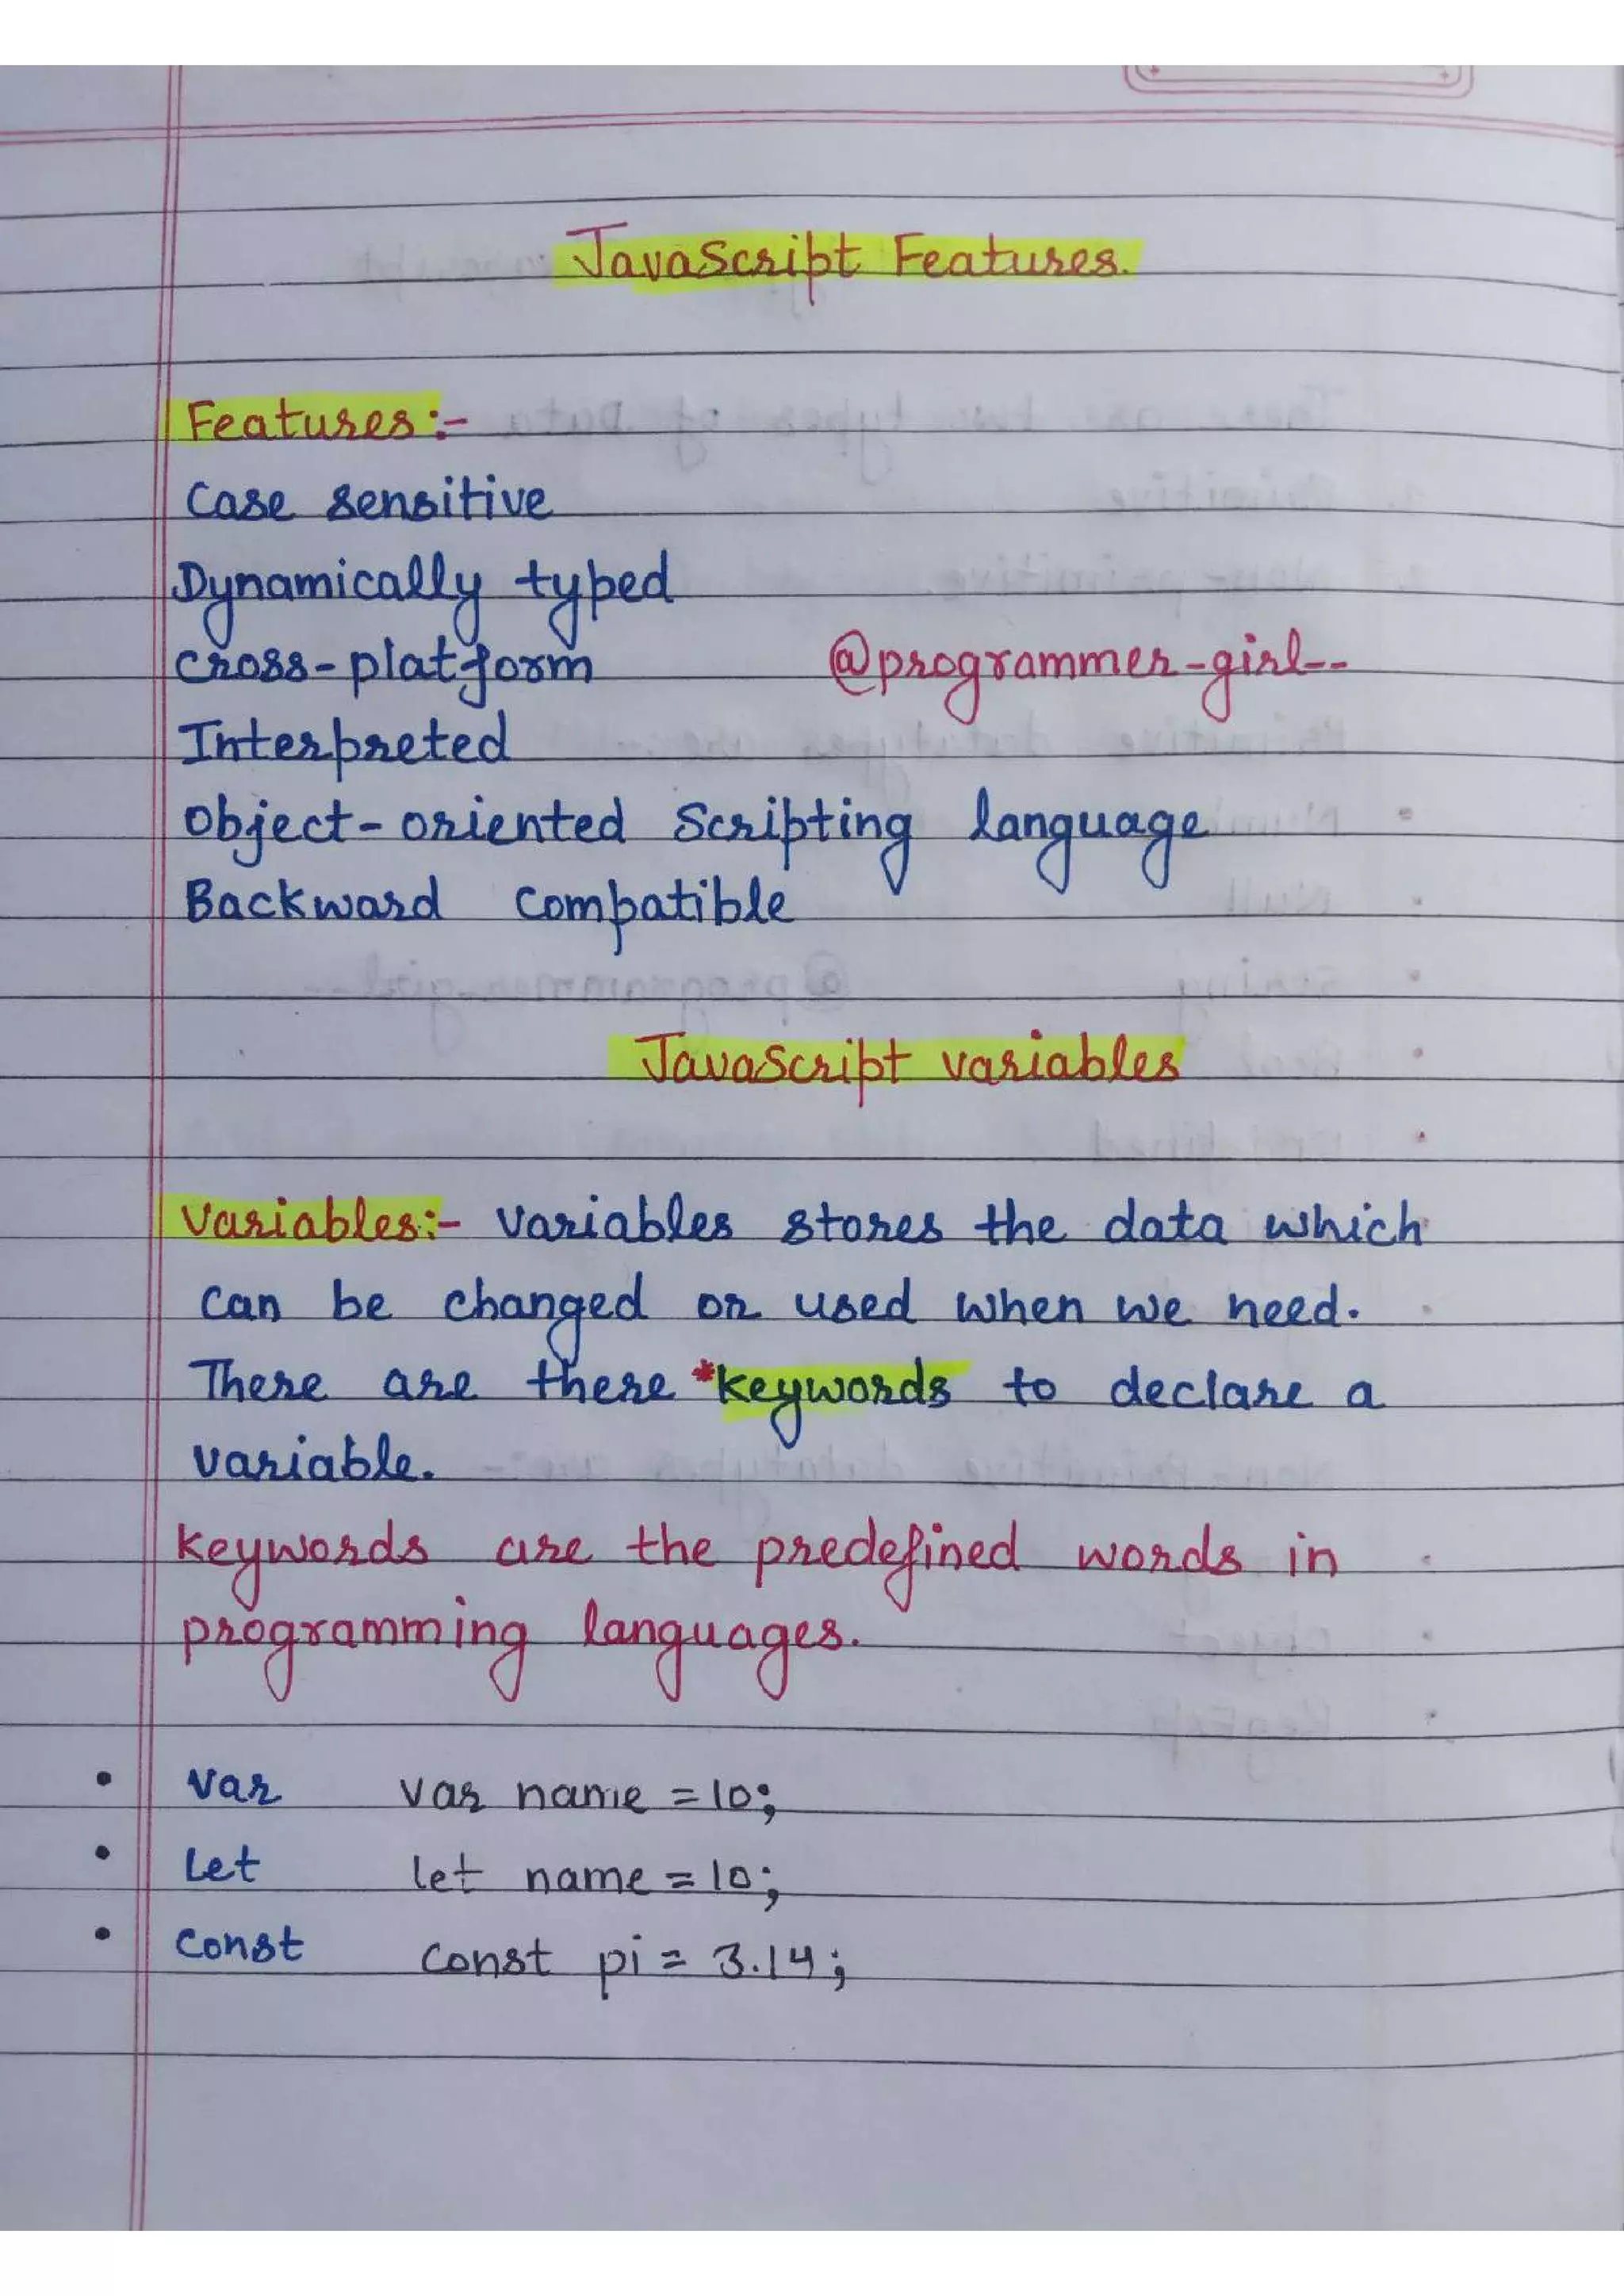 JavaScript Features.
Features:-
Case sensitive
Dynamically typed
Cross-platform @programmer-girl--
Interpreted
Object-oriented Scripting language
Backward compatible
JavaScript variables
Variables:- Variables stores the data which
can be changed or used when we need.
There are there *keywords to declare a
variable.
Keywords are the predefined words in
programming languages.
• Var Var name = 10;
• Let let name = 10;
• Const Const pi = 3.14;